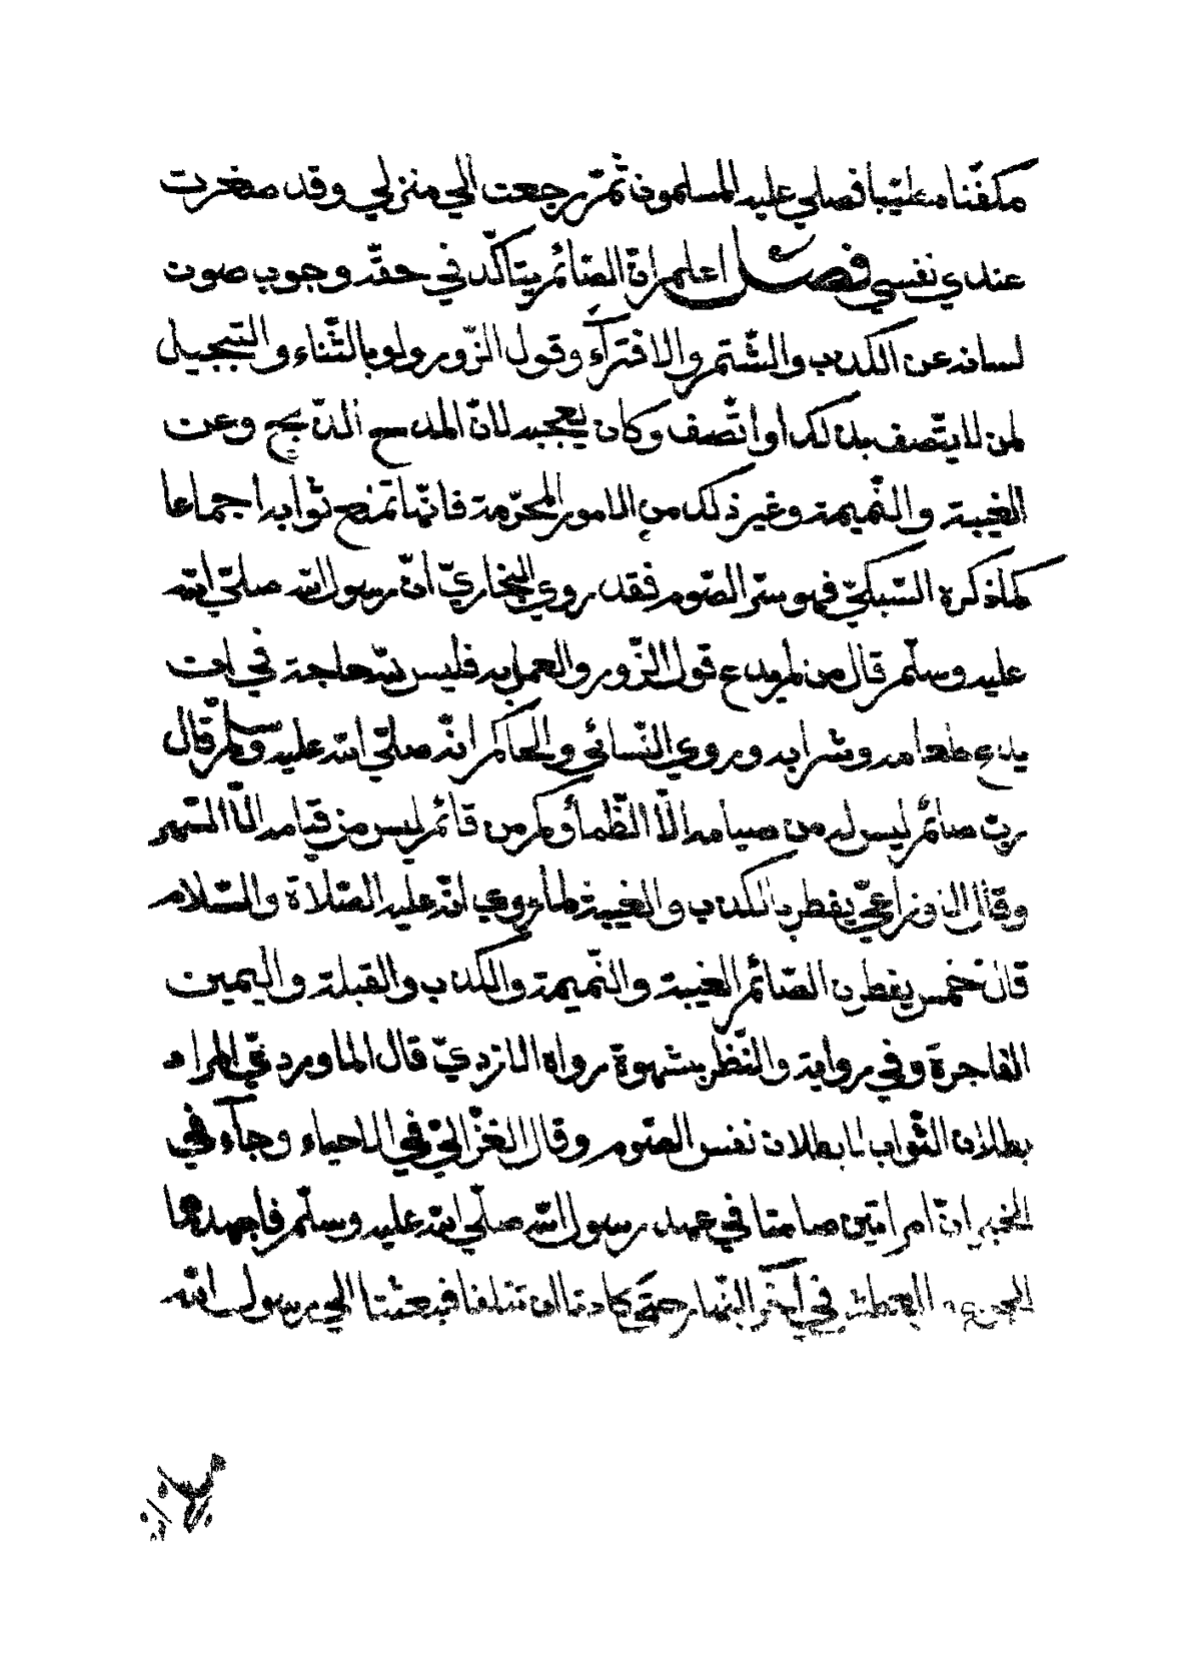 مكفّنا مطيّبا فصلي عليه المسلمون ثمّ رجعت الي منزلي وقد صغرت
عندي نفسي فصل اعلم انّ الصّائم يتاكّد في حقّه وجوب صون
لسانه عن الكذب والشّتم والافترآء وقول الزّور ولو بالثّناء والتّبجيل
لمن لا يتّصف بذلك او اتّصف وكان يعجبه لانّ المدح الذّبح وعن
الغيبة والنّميمة وغير ذلك من الامور المحرّمة فانّها تمنع ثوابه اجماعا
كما ذكره السّبكيّ فهو سرّ الصّوم فقد روي البخاريّ انّ رسول الله صلّي الله
عليه وسلّم قال من لم يدع قول الزّور والعمل به فليس لله حاجة في ان
يدع طعامه وشرابه وروي النّسائي والحاكم انّه صلّي الله عليه وسلّم قال
ربّ صائم ليس له من صيامه الّا الظّمأ وكم من قائم ليس من قيامه الّا السّهر
وقال الاوزاعيّ يفطر بالكذب والغيبة لما روي انّه عليه الصّلاة والسّلام
قال خمس يفطرن الصّائم الغيبة والنّميمة والكذب والقبلة واليمين
الفاجرة وفي رواية والنّظر بشهوة رواه الازديّ قال الماورديّ المراد
بطلان الثّواب لا بطلان نفس الصّوم وقال الغزاليّ في الاحياء وجآء في
الخبر انّ امراتين صامتا في عهد رسول الله صلّي الله عليه وسلّم فاجهدهما
الجوع والعطش في آخر النّهار حتّي كادتا ان تتلفا فبعثتا الي رسول الله